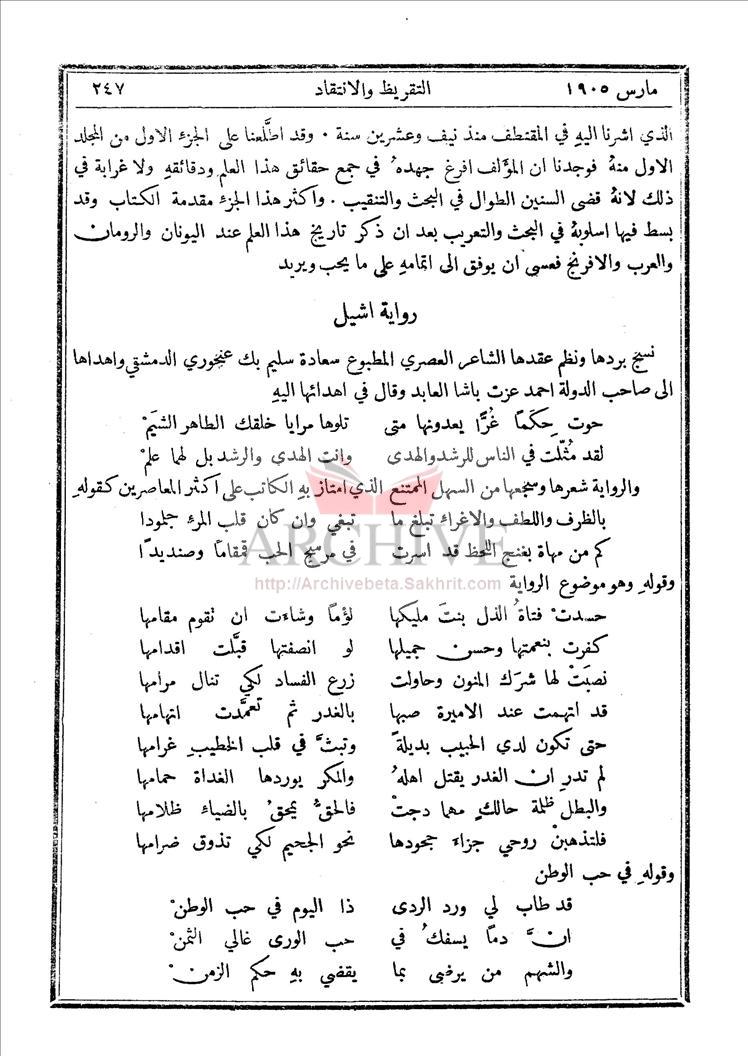 مارس ١٩٠٥ التقريظ والانتقاد ٢٤٧
الذي اشرنا اليهِ في المقتطف منذ نيف وعشرين سنة ٠ وقد اطَّلعنا على الجزء الاول من المجلد
الاول منهُ فوجدنا ان المؤلف افرغ جهدهُ في جمع حقائق هذا العلم ودقائقهِ ولا غرابة في
ذلك لانهُ قضى السنين الطوال في البحث والتنقيب . واكثر هذا الجزء مقدمة الكتاب وقد
بسط فيها اسلوبهُ في البحث والتعريب بعد ان ذكر تاريخ هذا العلم عند اليونان والرومان
والعرب والافرنج فعسى ان يوفق الى اتمامهِ على ما يحب ويريد
رواية اشيل
نسج بردها ونظم عقدها الشاعر العصري المطبوع سعادة سليم بك عنحوري الدمشقي واهداها
الى صاحب الدولة احمد عزت باشا العابد وقال في اهدائها اليهِ
حوت حِكَمًا غُرًّا يعدونها متى تلوها مرايا خلقك الطاهر الشيَمْ
لقد مُثّلت في الناس للرشد والهدى وانت الهدى والرشد بل لهما علمْ
والرواية شعرها وسجعها من السهل الممتنع الذي امتاز بهِ الكاتب على اكثر المعاصرين كقولهِ
بالظرف واللطف والاغراء تبلغ ما تبغي وان كان قلب المرءِ جلمودا
كم من مهاة بغنج اللحظ قد اسرت في مرسح الحب قمقامًا وصنديدًا
وقولهِ وهو موضوع الرواية
حسدتْ فتاةُ الذل بنتَ مليكها لؤمًا وشاءت ان تقوم مقامها
كفرت بنعمتها وحسن جميلها لو انصفتها قبَّلت اقدامها
نصبَتْ لها شرَك المنون وحاولت زرع الفساد لكي تنال مرامها
قد اتهمت عند الاميرة صبها بالغدر ثم تعمَّدت اتهامها
حتى تكون لدى الحبيب بديلةً وتبثَّ في قلب الخطيبِ غرامها
لم تدرِ ان الغدر يقتل اهلهُ والمكر يوردها الغداة حمامها
والبطل ظلمة حالكٍ مهما دجتْ فالحقُّ يمحقُ بالضياء ظلامها
فلتذهبنْ روحي جزاءَ جحودها نحو الجحيم لكي تذوق ضرامها
وقولهِ في حب الوطن
قد طاب لي ورد الردى ذا اليوم في حب الوطنْ
انَّ دمًا يسفكُ في حب الورى غالي الثمنْ
والشهم من يرضى بما يقضي بهِ حكم الزمنْ
ARCHIVE
http://Archivebeta.Sakhrit.com